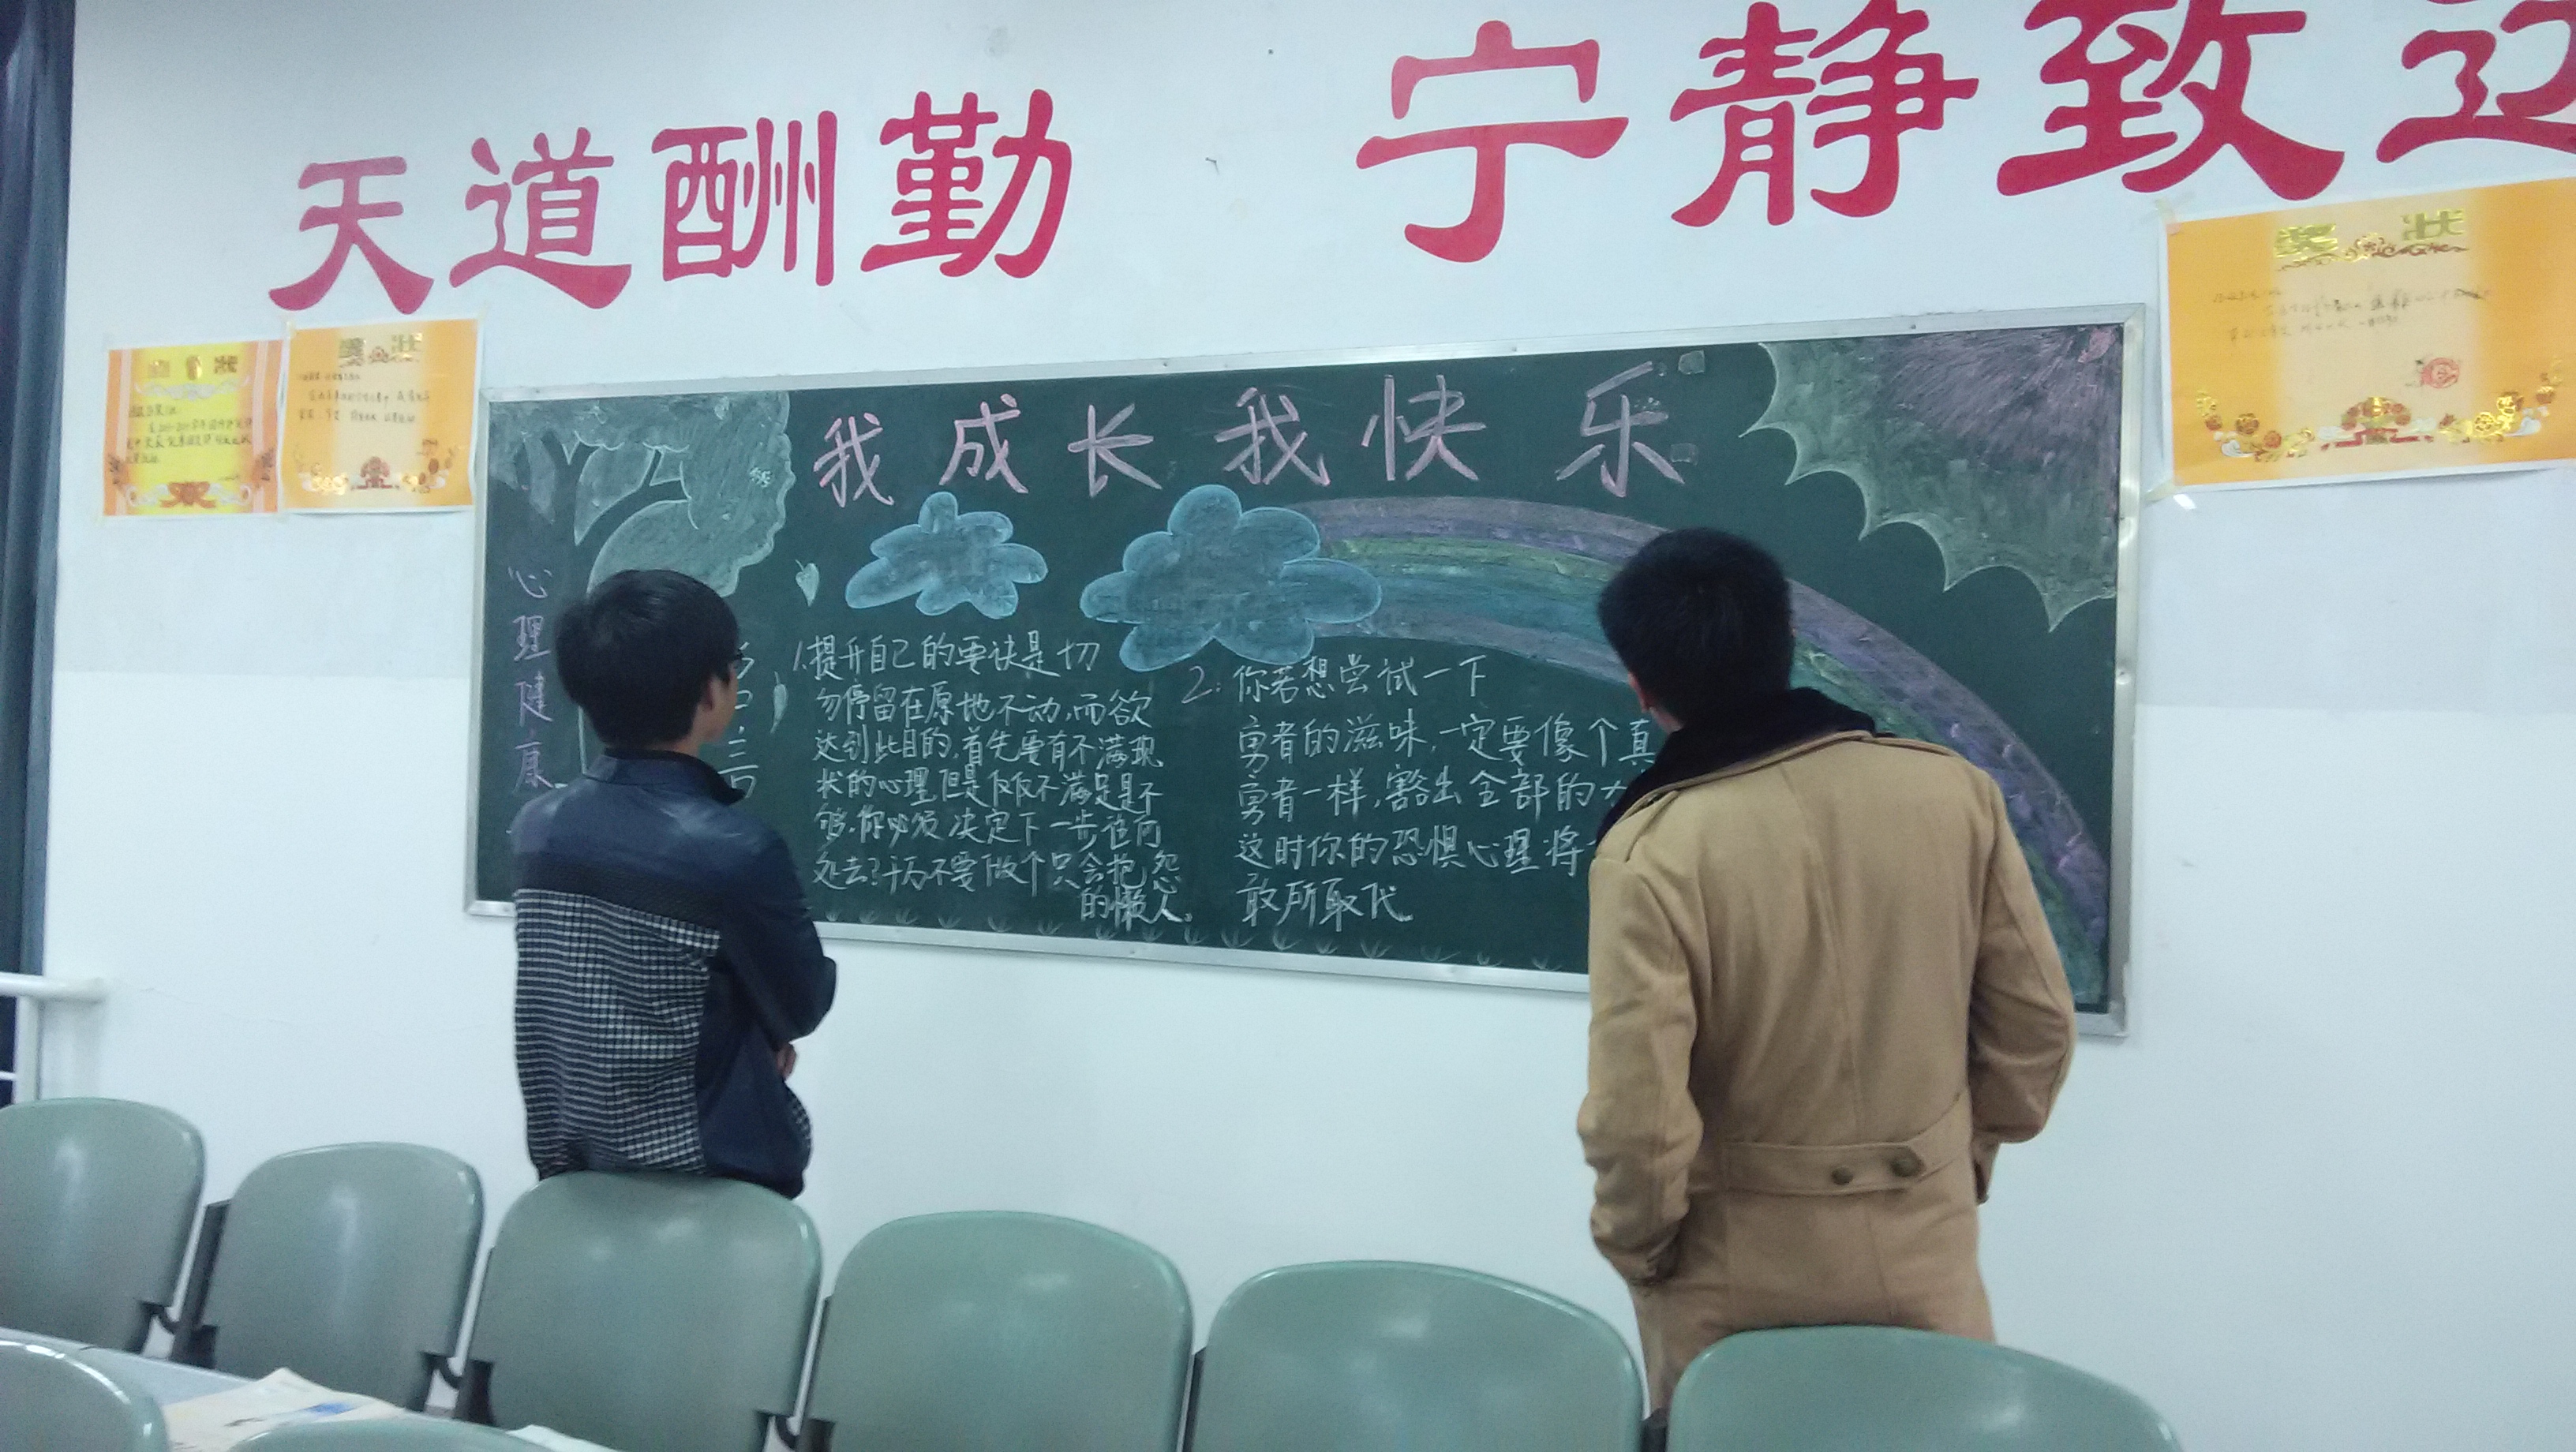 天道酬勤 宁静致远
奖状
奖状
我成长我快乐
心理健康
1.提升自己的要诀是切
勿停留在原地不动,而欲
达到此目的,首先要有不满现
状的心理,但是仅仅不满足是不
够,你必须决定下一步往何
处去?千万不要做个只会抱怨
的懒人。
2.你若想尝试一下
勇者的滋味,一定要像个真
勇者一样,豁出全部的
这时你的恐惧心理将
敢所取代